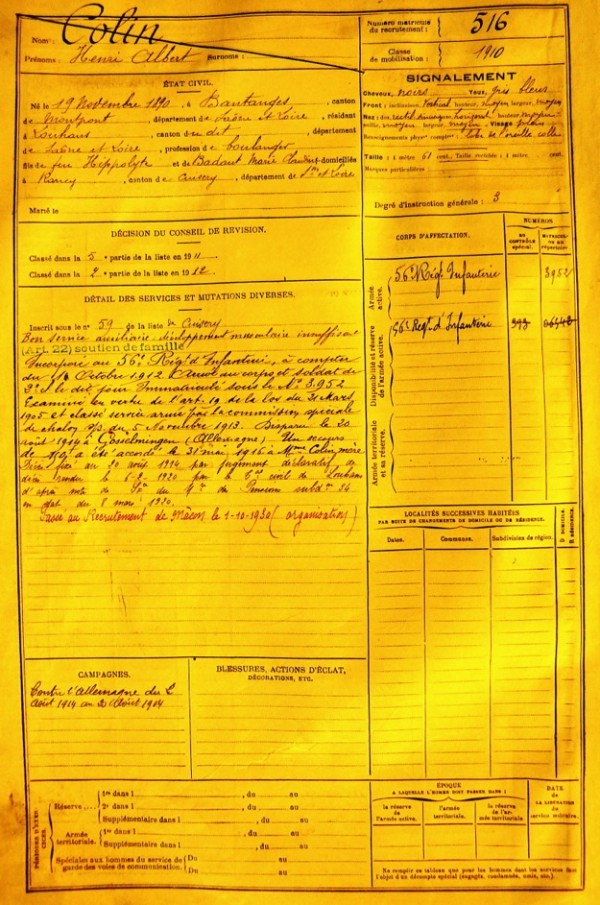 Nom : Colin
Prénoms : Henri Albert Surnoms :
Numéro matricule du recrutement : 516
Classe de mobilisation : 1910
ÉTAT CIVIL.
Né le 19 Novembre 1890, à Bantanges, canton
de Montpont, département de Saône et Loire, résidant
à Louhans, canton du dit, département
de Saône et Loire, profession de boulanger
fils de feu Hippolyte et de Badaut Marie Claudine domiciliés
à Rancy, canton de Cuisery, département de S. et Loire
Marié le
SIGNALEMENT
Cheveux, noirs. Yeux, gris bleus
Front : inclinaison, Vertical hauteur, moyen largeur, moyen
Nez : dos, rectil. base horizont. hauteur, moyen
saillie, moyen largeur, moyen Visage
Renseignements phys. complém. :
Taille : 1 mètre 61 cent. Taille rectifiée : 1 mètre cent.
Marques particulières :
Degré d'instruction générale : 3
DÉCISION DU CONSEIL DE REVISION.
Classé dans la 5 e partie de la liste en 1911.
Classé dans la 2 e partie de la liste en 1912.
CORPS D'AFFECTATION.
NUMÉROS
au contrôle spécial.
matricule ou au répertoire.
Armée active.
56e Régt Infanterie 3952
Disponibilité et réserve de l'armée active.
56e Regt d'Infanterie
Armée territoriale et sa réserve.
DÉTAIL DES SERVICES ET MUTATIONS DIVERSES.
Inscrit sous le n° 59 de la liste de Cuisery
Bon service auxiliaire développement musculaire insuffisant
(Art. 22) soutien de famille
Incorporé au 56e Régt d'Infanterie, à compter
du Octobre 1912 Arrivé au corps et soldat de
2e cl le dit jour Immatriculé sous le N° 3.952
Examiné en vertu de l'art. 19 de la loi du 21 Mars
1905 et classé service armé par la commission spéciale
de Chalon s/s du 5 Novembre 1913. Disparu le 20
août 1914 à Gosselmingen (Allemagne) Un secours
de a été accordé le 31 mai 1916 à Mme Colin mère
Décès fixé au 20 août 1914 par jugement déclaratif de
décès rendu le 6-2-1920 par le civil de Louhans
d'après avis de du de Pension subd. 34
en dat. du 8 mars 1920.
Passé au Recrutement de Mâcon le 1-10-1930 (organisation)
LOCALITÉS SUCCESSIVES HABITÉES
PAR SUITE DE CHANGEMENTS DE DOMICILE OU DE RÉSIDENCE.
Dates. Communes. Subdivision de région. D. DOMICILE R. RÉSIDENCE.
CAMPAGNES.
Contre l'Allemagne du 2
Août 1914 au 20 Août 1914
BLESSURES, ACTIONS D'ÉCLAT,
DÉCORATIONS, ETC.
PÉRIODES D'EXERCICES.
Réserve
1re dans l , du au
2e dans l , du au
Supplémentaire dans l , du au
Armée territoriale.
1re dans l , du au
Supplémentaire dans l , du au
Spéciales aux hommes du service de garde des voies de communication.
Du au
Du au
ÉPOQUE
À LAQUELLE L'HOMME DOIT PASSER DANS :
la réserve de l'armée active.
l'armée territoriale.
la réserve de l'armée territoriale.
DATE
de
LA LIBÉRATION
du
service militaire.
Ne remplir ce tableau que pour les hommes dont les services font
l'objet d'un décompte spécial (engagés, condamnés, omis, etc.)